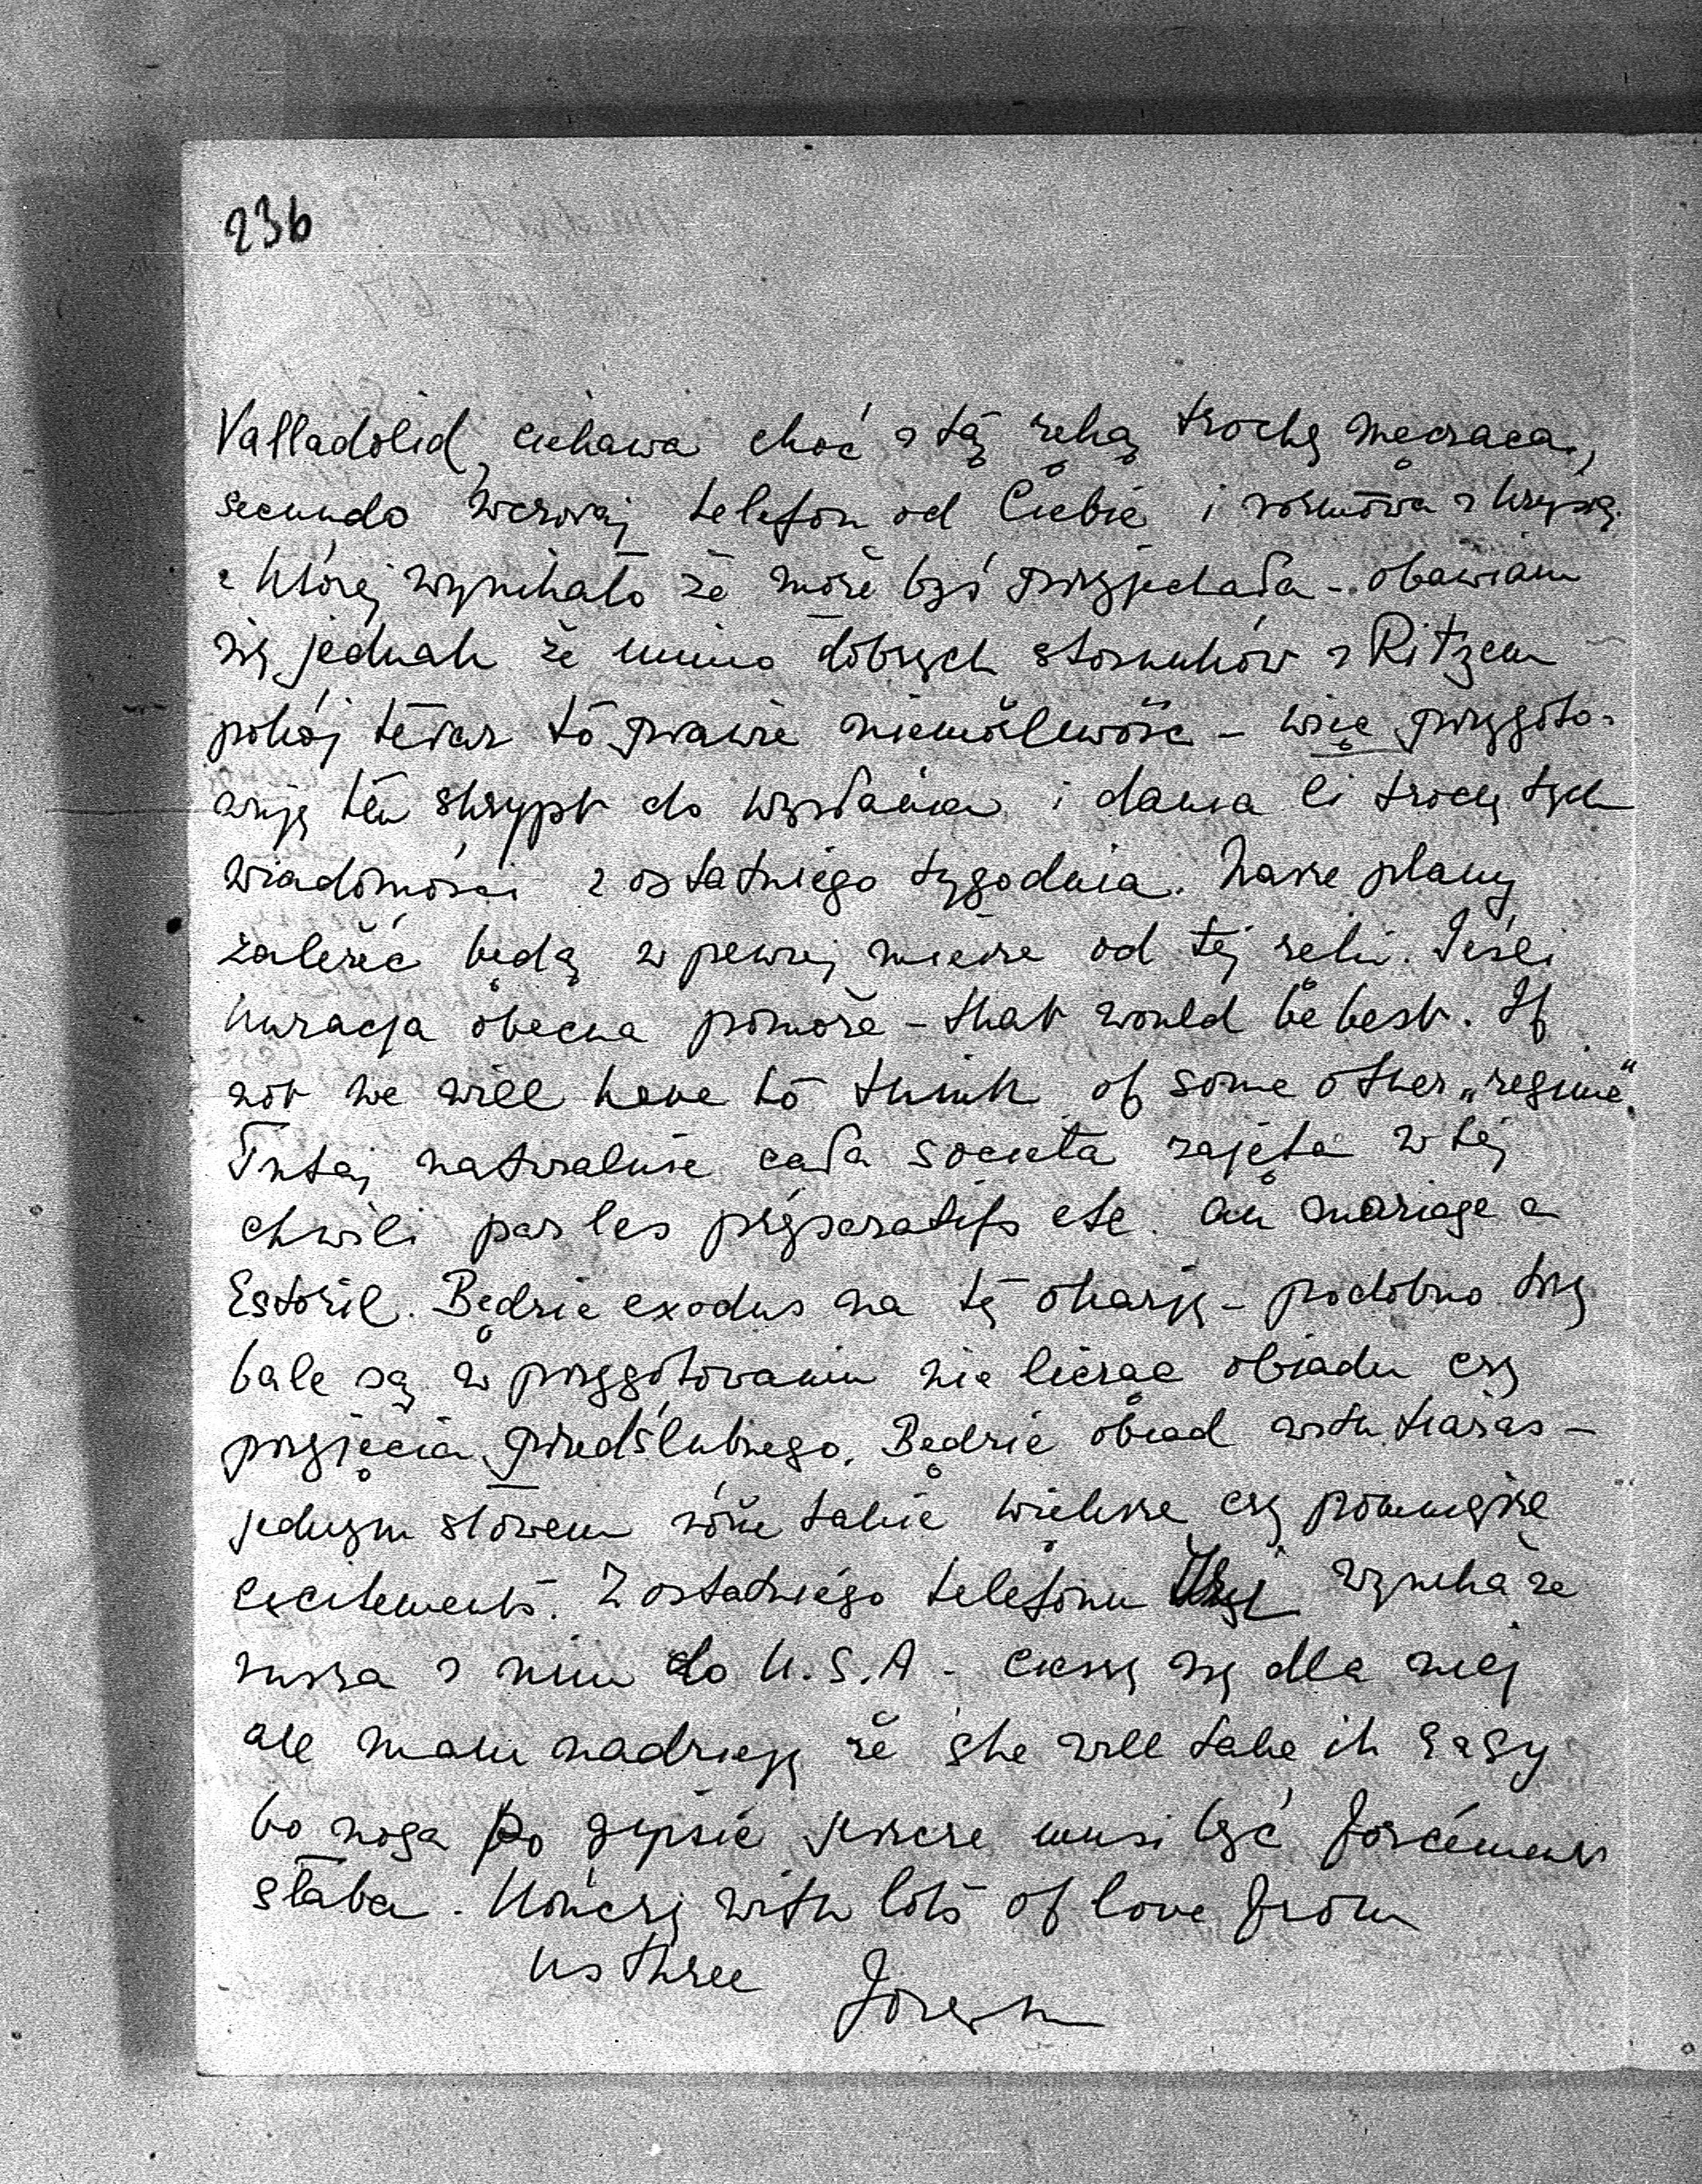 236
Valladolid, ciekawa choć z tą ręką trochę męcząca,
secundo wczoraj telefon od Ciebie i rozmowa z Krysią
z której wynikało że może byś przyjechała - obawiam
się jednak że mimo dobrych stosunków z Ritzem
pokój teraz to prawie niemożliwość - więc przygoto-
wuję ten skrypt do wysłania i dania Ci trochę tych
wiadomości z ostatniego tygodnia. Nasze plany
zależeć będą w pewnej mierze od tej ręki. Jeśli
kuracja obecna pomoże - that would be best. If
not we will have to think of some other „regime".
Tutaj naturalnie cała societa zajęta w tej
chwili par les préparatifs etc. au mariage a
Estoril. Będzie exodus na tę okazję - podobno trzy
bale są w przygotowaniu nie licząc obiadu czy
przyjęcia przedślubnego. Będzie obiad with tiaras -
jednym słowem różne takie większe czy pomniejsze
excitements. Z ostatniego telefonu wynika że
rusza z nim do U.S.A - cieszę się dla niej
ale mam nadzieję że she will take it easy
bo noga po gipsie jeszcze musi być forcément
słaba. Kończę with lots of love from
us three Józef